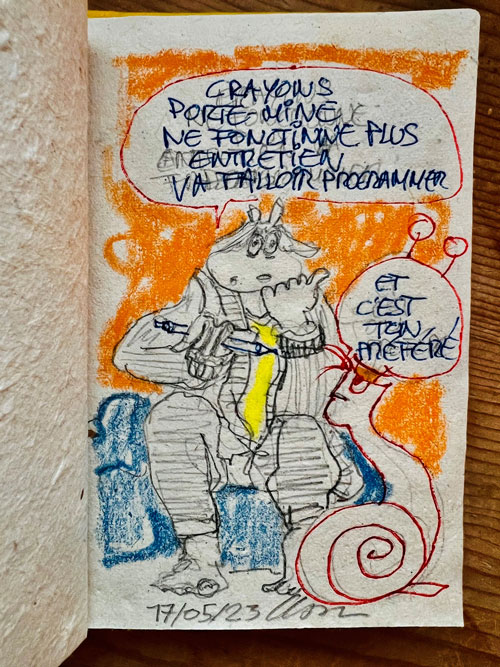 CRAYONS
PORTE MINE
NE FONCTINNE PLUS
ENTRETIEN
VA FALLOIR PROGRAMMER
ET
C'EST
TON
PREFERE
17/05/23